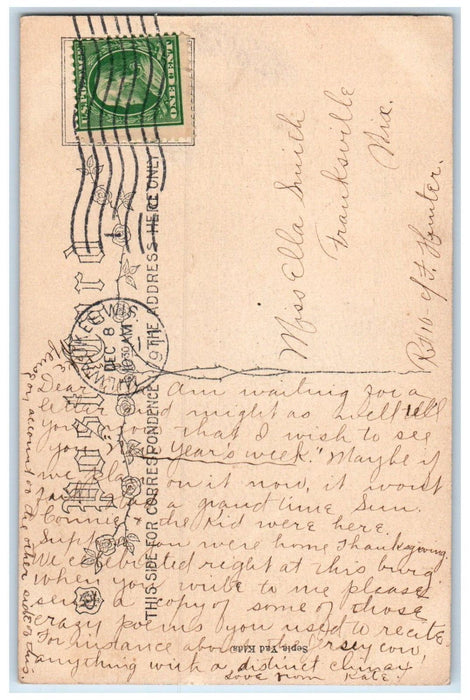 U.S. POSTAGE
ONE CENT
Post Card
THIS SIDE FOR CORRESPONDENCE
THE ADDRESS HERE ONLY
MILWAUKEE, WIS.
DEC 8
10 30 AM
1911
Miss Ella Smith
Franksville
Wis.
R#10 - c/o F. Hunter.
Dear
Am waiting for a
letter and might as well tell
you now that I wish to see
you "Year's week." Maybe if
we plan on it now, it won't
a grand time Sun.
Connie & the Kid were here.
Suppose you were home Thanksgiving
We celebrated right at this burg.
when you write to me please
send a copy of some of those
crazy poems you used to recite.
For instance about the Jersey cow
anything with a distinct climax
Love from Kate.
account on the other side
Sepia Vad Kids